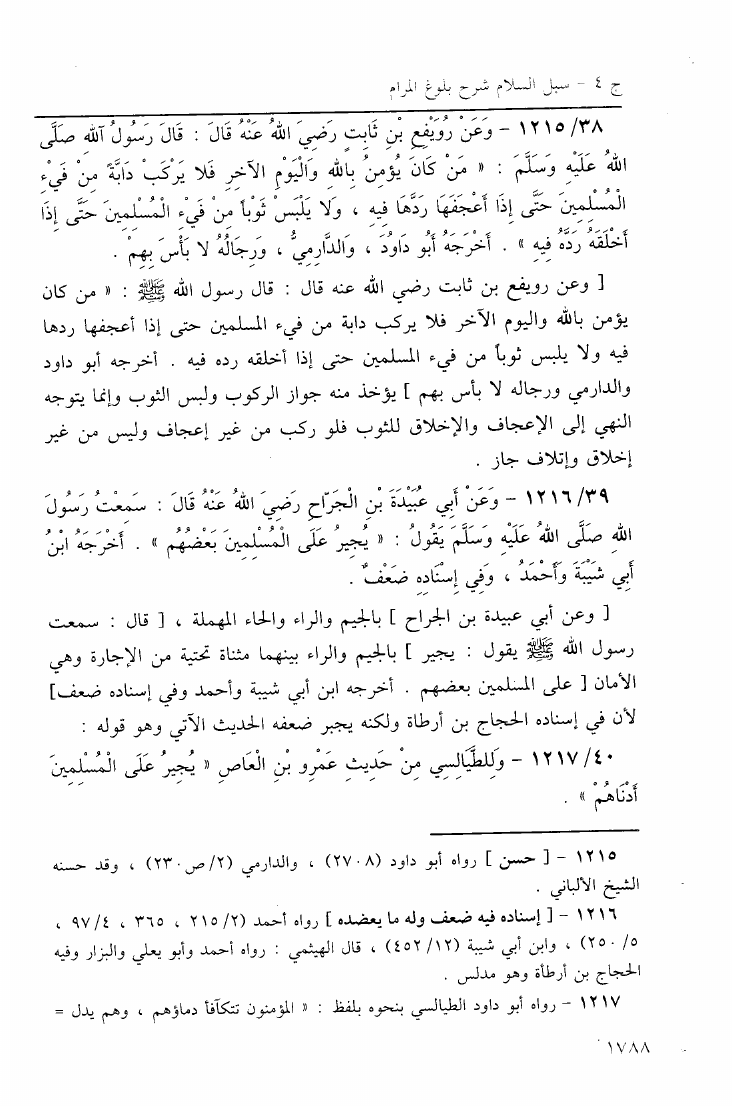 ج ٤ - سبل السلام شرح بلوغ المرام
١٢١٥/٣٨ - وَعَنْ رُوَيْفِعِ بْنِ ثَابِتٍ رَضِيَ اللهُ عَنْهُ قَالَ : قَالَ رَسُولُ آللهِ صَلَّى
اللهُ عَلَيْهِ وَسَلَّمَ : « مَنْ كَانَ يُؤْمِنُ بِاللهِ وَالْيَوْمِ الآخِرِ فَلا يَرْكَبْ دَابَّةً مِنْ فَيْءِ
الْمُسْلِمِينَ حَتَّى إِذَا أَعْجَفَهَا رَدَّهَا فِيهِ ، وَلا يَلْبَسْ ثَوْباً مِنْ فَيْءِ الْمُسْلِمِينَ حَتَّى إِذَا
أَخْلَقَهُ رَدَّهُ فِيهِ » . أَخْرَجَهُ أَبُو دَاوُدَ ، وَالدَّارِمِيُّ ، وَرِجَالُهُ لا بَأْسَ بِهِمْ .
[ وعن رويفع بن ثابت رضي الله عنه قال : قال رسول الله ﷺ : « من كان
يؤمن بالله واليوم الآخر فلا يركب دابة من فيء المسلمين حتى إذا أعجفها ردها
فيه ولا يلبس ثوباً من فيء المسلمين حتى إذا أخلقه رده فيه . أخرجه أبو داود
والدارمي ورجاله لا بأس بهم ] يؤخذ منه جواز الركوب ولبس الثوب وإنما يتوجه
النهي إلى الإعجاف والإخلاق للثوب فلو ركب من غير إعجاف وليس من غير
إخلاق وإتلاف جاز .
١٢١٦/٣٩ - وَعَنْ أَبِي عُبَيْدَةَ بْنِ الْجَرَّاحِ رَضِيَ اللهُ عَنْهُ قَالَ : سَمِعْتُ رَسُولَ
اللهِ صَلَّى اللهُ عَلَيْهِ وَسَلَّمَ يَقُولُ : « يُجِيرُ عَلَى الْمُسْلِمِينَ بَعْضُهُمْ » . أَخْرَجَهُ ابْنُ
أَبِي شَيْبَةَ وَأَحْمَدُ ، وَفِي إِسْنَادِهِ ضَعْفٌ .
[ وعن أبي عبيدة بن الجراح ] بالجيم والراء والحاء المهملة ، [ قال : سمعت
رسول الله ﷺ يقول : يجير ] بالجيم والراء بينهما مثناة تحتية من الإجارة وهي
الأمان [ على المسلمين بعضهم . أخرجه ابن أبي شيبة وأحمد وفي إسناده ضعف]
لأن في إسناده الحجاج بن أرطاة ولكنه يجبر ضعفه الحديث الآتي وهو قوله :
١٢١٧/٤٠ - وَلِلطَّيَالِسِي مِنْ حَدِيثِ عَمْرِو بْنِ الْعَاصِ « يُجِيرُ عَلَى الْمُسْلِمِينَ
أَدْنَاهُمْ » .
١٢١٥ - [ حسن ] رواه أبو داود (٢٧٠٨) ، والدارمي (٢/ص٢٣٠) ، وقد حسنه
الشيخ الألباني .
١٢١٦ - [ إسناده فيه ضعف وله ما يعضده ] رواه أحمد (٢١٥/٢ ، ٣٦٥ ، ٩٧/٤ ،
٢٥٠/٥) ، وابن أبي شيبة (٤٥٢/١٢) ، قال الهيثمي : رواه أحمد وأبو يعلي والبزار وفيه
الحجاج بن أرطأة وهو مدلس .
١٢١٧ - رواه أبو داود الطيالسي بنحوه بلفظ : « المؤمنون تتكآفأ دماؤهم ، وهم يدل =
١٧٨٨